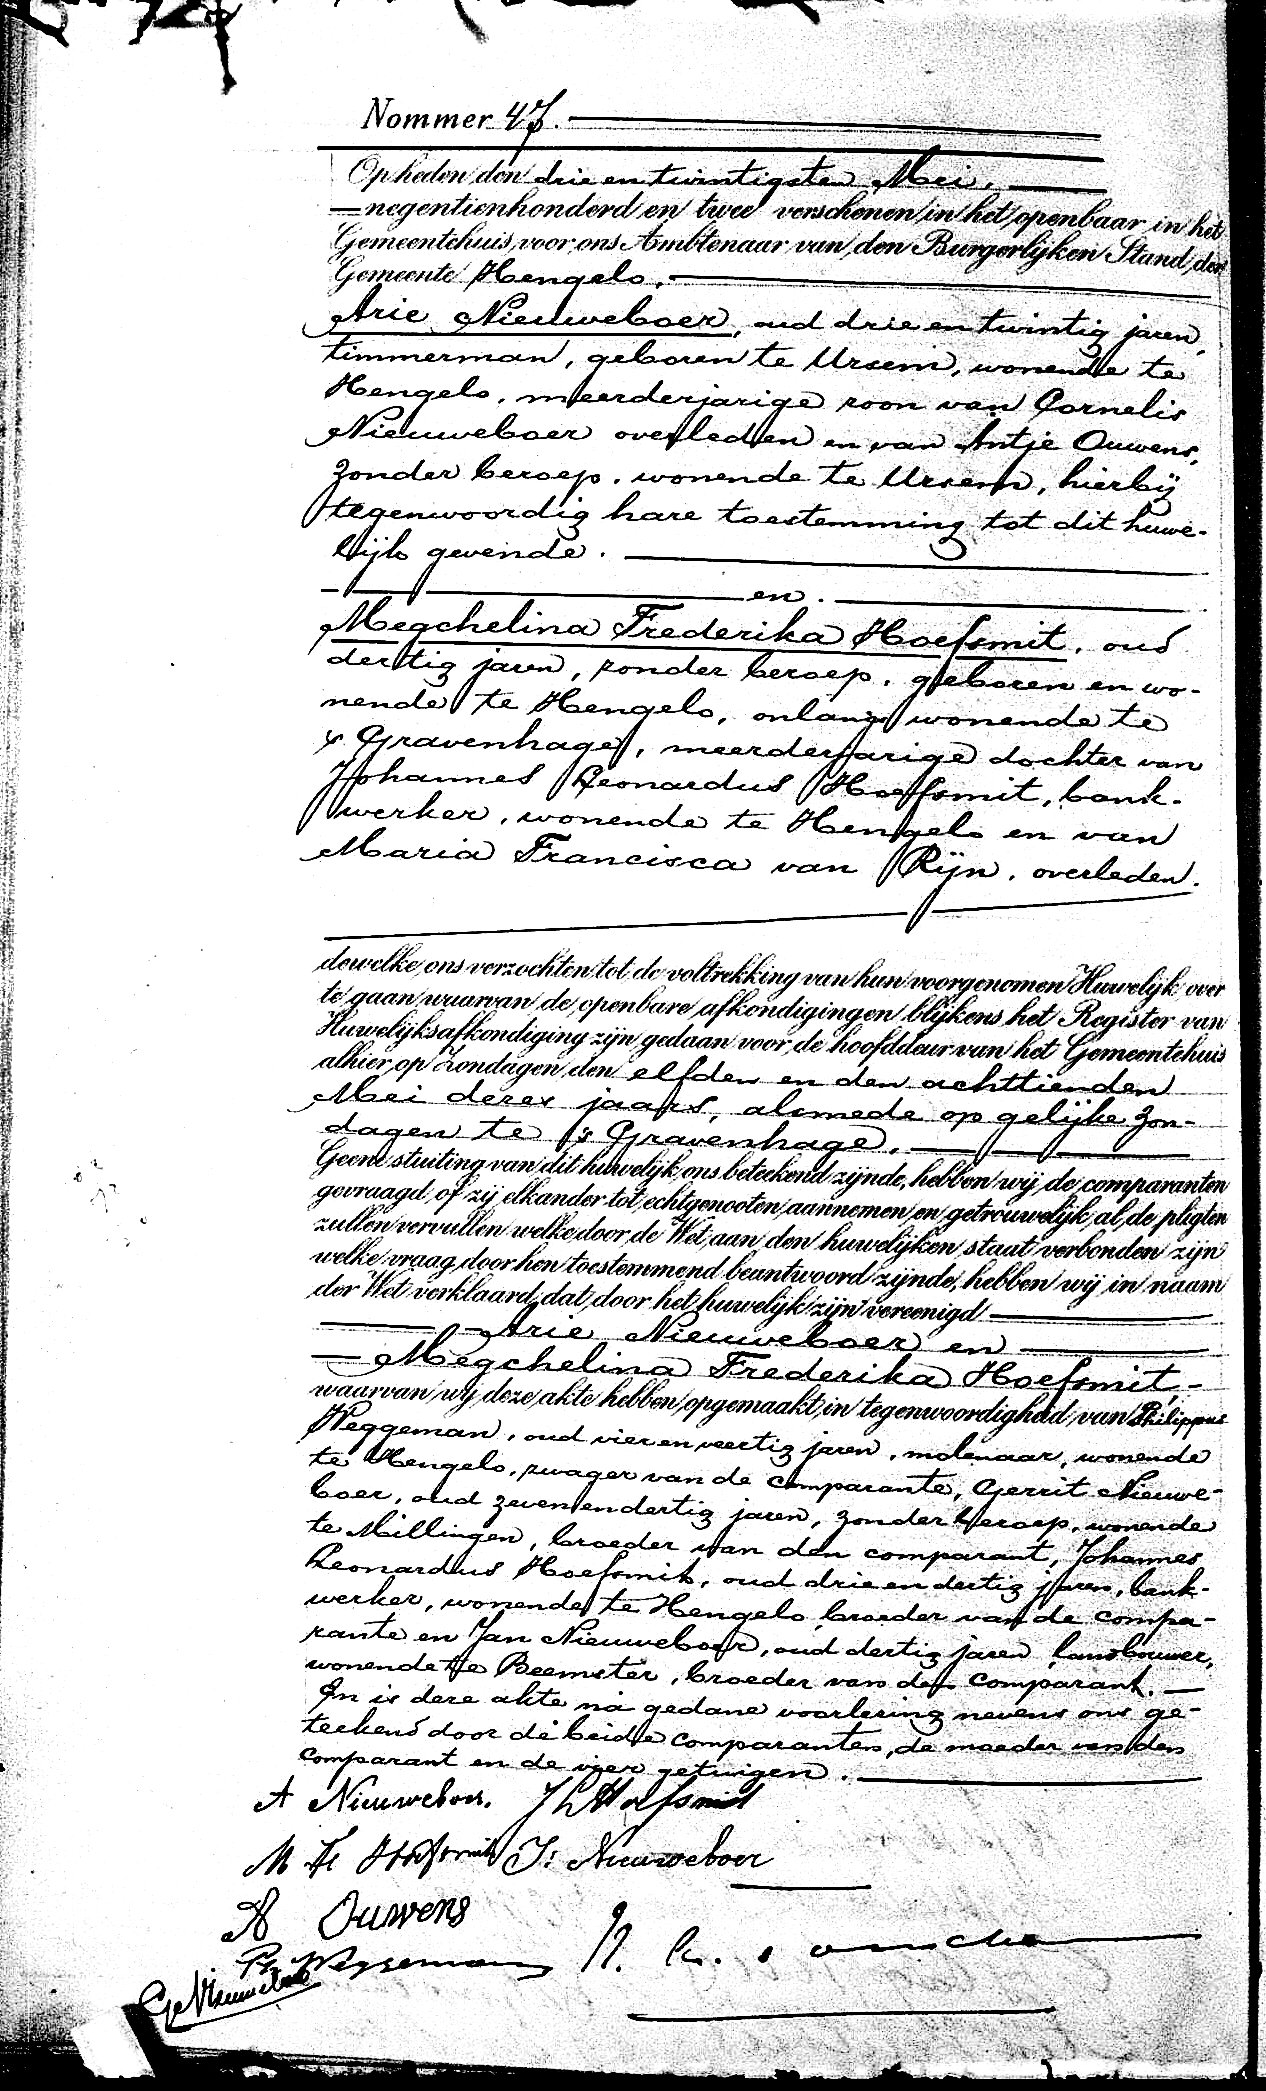 Nommer 47.
Op heden den drie en twintigsten Mei.
negentienhonderd en twee verschenen in het openbaar in het
Gemeentehuis voor ons Ambtenaar van den Burgerlijken Stand der
Gemeente Hengelo.
Arie Nieuweboer, oud drie en twintig jaren,
timmerman, geboren te Ursem, wonende te
Hengelo, meerderjarige zoon van Cornelis
Nieuweboer overleden en van Antje Ouwens,
zonder beroep, wonende te Ursem, hierbij
tegenwoordig hare toestemming tot dit huwe-
lijk gevende.
en.
Megchelina Frederika Hoefsmit, oud
dertig jaren, zonder beroep, geboren en wo-
nende te Hengelo, onlangs wonende te
's Gravenhage, meerderjarige dochter van
Johannes Leonardus Hoefsmit, bank-
werker, wonende te Hengelo en van
Maria Francisca van Rijn, overleden.
dewelke ons verzochten tot de voltrekking van hun voorgenomen Huwelijk over
te gaan waarvan de openbare afkondigingen blijkens het Register van
Huwelijksafkondiging zijn gedaan voor de hoofddeur van het Gemeentehuis
alhier op Zondagen den elfden en den achttienden
Mei dezes jaars, alsmede op gelijke Zon-
dagen te 's Gravenhage.
Geene stuiting van dit huwelijk ons beteekend zijnde, hebben wij de comparanten
gevraagd of zij elkander tot echtgenooten aannemen en getrouwelijk al de pligten
zullen vervullen welke door de Wet aan den huwelijken staat verbonden zijn
welke vraag door hen toestemmend beantwoord zijnde, hebben wij in naam
der Wet verklaard dat door het huwelijk zijn vereenigd
Arie Nieuweboer en
Megchelina Frederika Hoefsmit
waarvan wij deze akte hebben opgemaakt in tegenwoordigheid van Philippus
Weggeman, oud vier en veertig jaren, molenaar, wonende
te Hengelo, zwager van de comparante, Gerrit Nieuwe-
boer, oud zeven en dertig jaren, zonder beroep, wonende
te Millingen, broeder van den comparant, Johannes
Leonardus Hoefsmit, oud drie en dertig jaren, bank-
werker, wonende te Hengelo broeder van de compa-
rante en Jan Nieuweboer, oud dertig jaren, landbouwer,
wonende te Beemster, broeder van den comparant.
En is deze akte na gedane voorlezing nevens ons ge-
teekend door de beide comparanten, de moeder van den
comparant en de vier getuigen.
A Nieuweboer. J L Hoefsmit
M F Hoefsmit J: Nieuweboer
A Ouwens
Ph Weggeman
G Nieuweboer